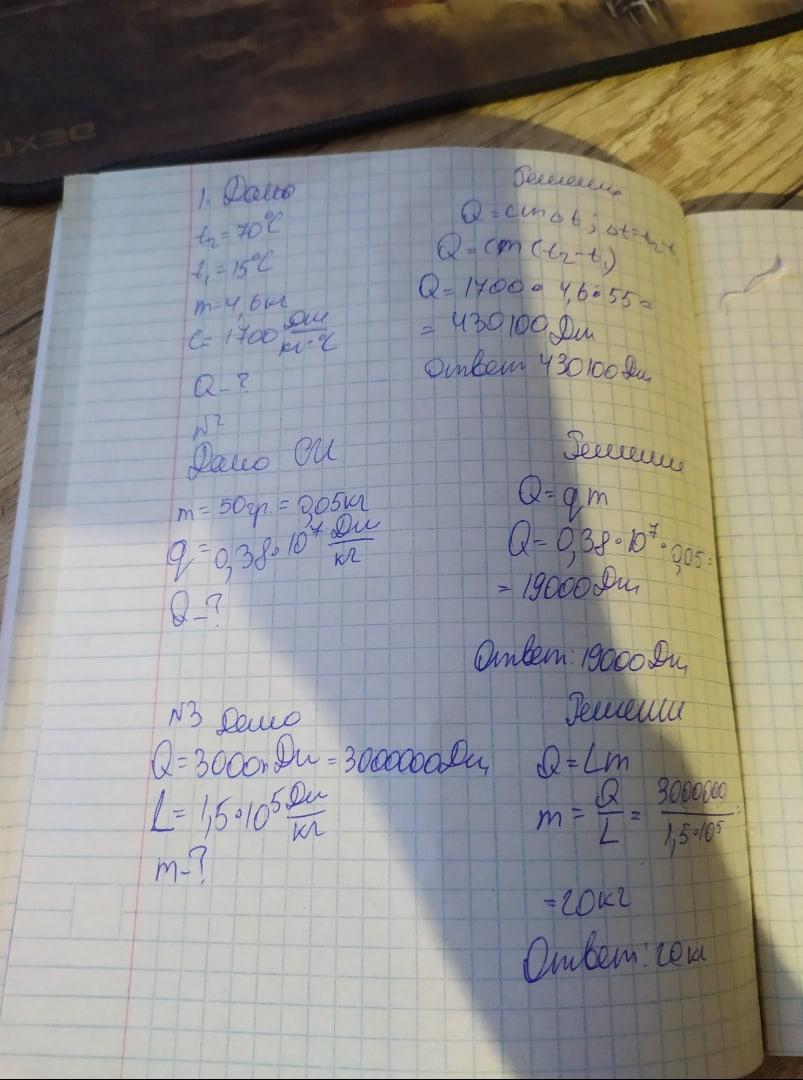 DEXP
1. Дано
t₂ = 70°C
t₁ = 15°C
m = 4,6 кг
C = 1700 Дж/кг·°C
Q - ?
Решение
Q = cmΔt; Δt = t₂-t₁
Q = cm(t₂-t₁)
Q = 1700 · 4,6 · 55 =
= 430100 Дж
Ответ 430100 Дж
N2
Дано СИ
m = 50гр. = 0,05кг
q = 0,38·10⁷ Дж/кг
Q - ?
Решение
Q = qm
Q = 0,38·10⁷·0,05 =
= 19000 Дж
Ответ: 19000 Дж
N3 Дано
Q = 3000 Дж = 3000000 Дж
L = 1,5·10⁵ Дж/кг
m - ?
Решение
Q = Lm
m = Q/L = 3000000/1,5·10⁵ =
= 20кг
Ответ: 20кг